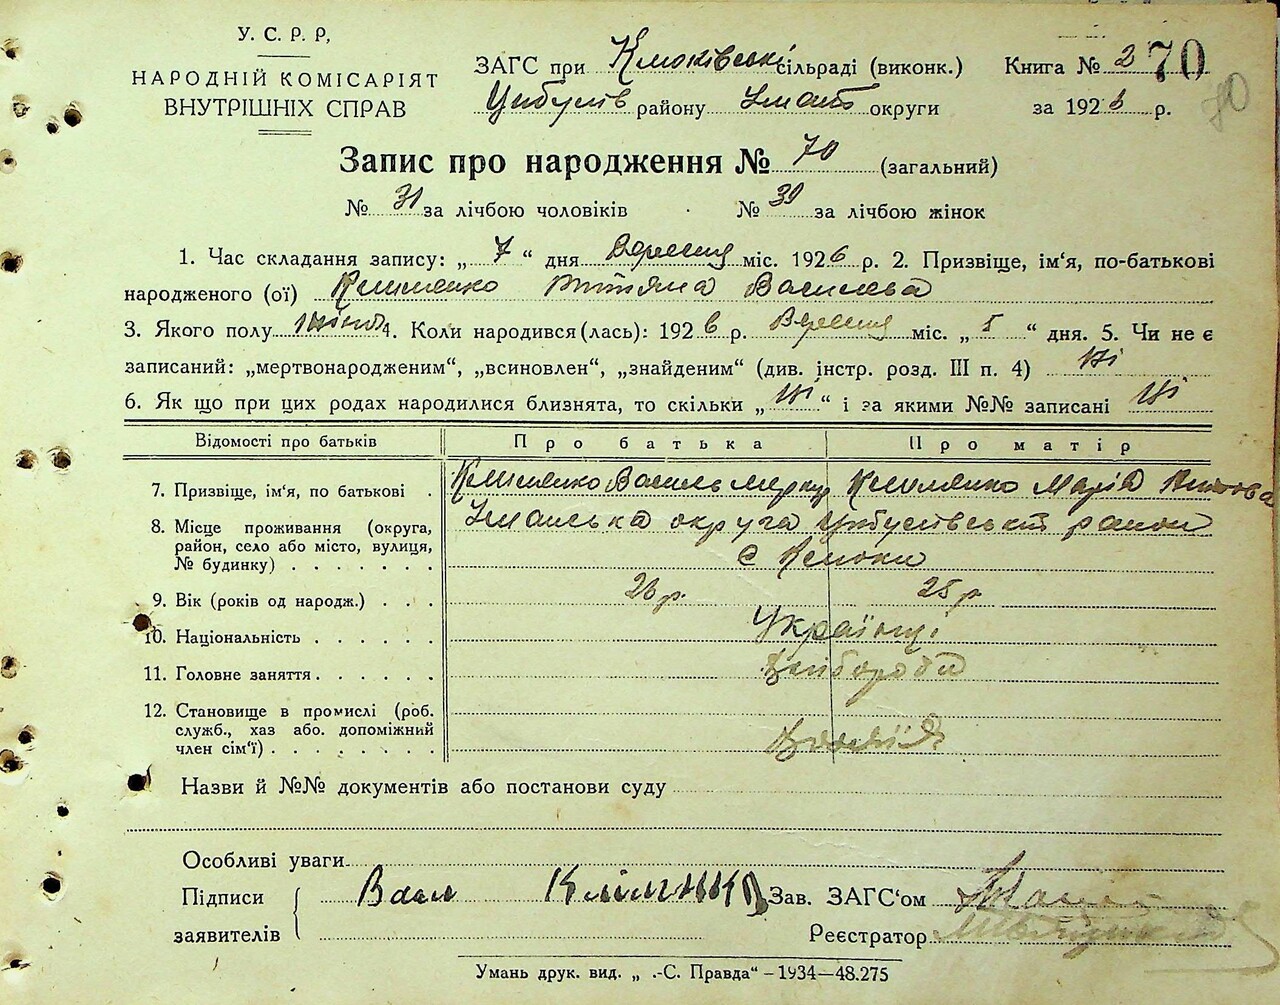 У. С. Р. Р,
НАРОДНІЙ КОМІСАРІЯТ
ВНУТРІШНІХ СПРАВ
ЗАГС при Клюківські сільраді (виконк.) Книга № 2 70
Цибулів району Умань округи за 1926 р.
70
Запис про народження № 70 (загальний)
№ 31 за лічбою чоловіків № 39 за лічбою жінок
1. Час складання запису: „ 7 “ дня Вересня міс. 1926 р. 2. Призвіще, ім‘я, по-батькові
народженого (ої) Клименко Титяна Василева
3. Якого полу жіноч 4. Коли народився (лась): 1926 р. Вересня міс. „ 1 “ дня. 5. Чи не є
записаний: „мертвонародженим“, „всиновлен“, „знайденим“ (див. інстр. розд. III п. 4) ні
6. Як що при цих родах народилися близнята, то скільки „ ні “ і за якими №№ записані ні
Відомості про батьків Про батька Про матір
7. Призвіще, ім‘я, по батькові . Клименко Василь Клименко Марія
8. Місце проживання (округа, Уманська округа Цибулівський район
район, село або місто, вулиця,
№ будинку) . . . . . . . с Клюки
9. Вік (років од народж.) . . . 26 р. 25 р
10. Національність . . . . . . Українці
11. Головне заняття . . . . . . Хлібороби
12. Становище в промислі (роб.
служб., хаз або. допоміжний
член сім‘ї) . . . . . . . .
Назви й №№ документів або постанови суду
Особливі уваги
Підписи Васил Клименко Зав. ЗАГС‘ом
заявителів Реєстратор
Умань друк. вид. „ .-С. Правда“ – 1934—48.275